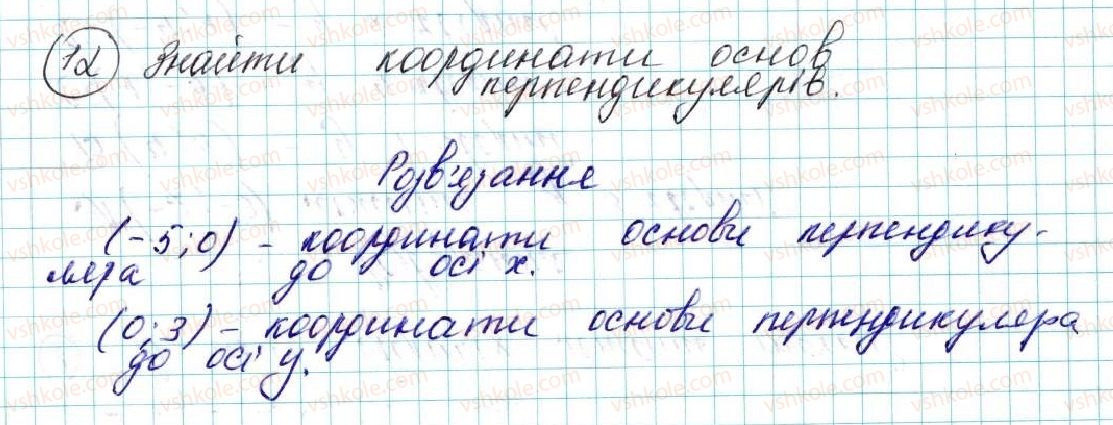 12 Знайти координати основ
перпендикулярів.
Розв'язання
(-5;0) - координати основи перпендику-
ляра до осі x.
(0;3) - координати основи перпендикуляра
до осі y.